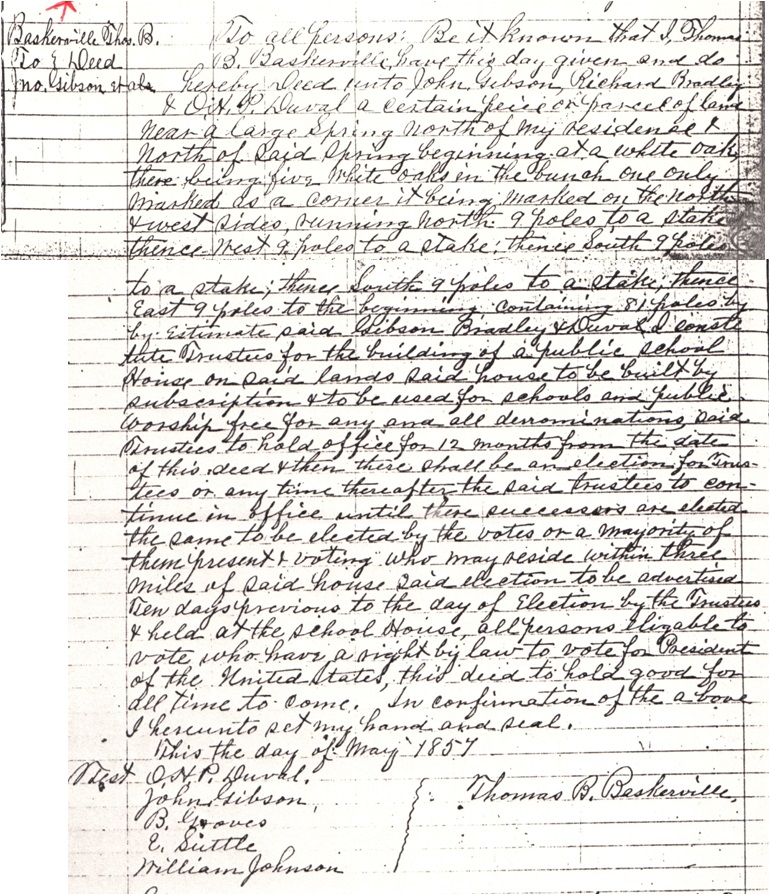 Baskerville Thos. B.
To } Deed
Jno. Gibson et als
To all persons: Be it known that I, Thomas
B. Baskerville, have this day given and do
hereby Deed unto John Gibson, Richard Bradley
& O.H.P. Duval a certain peice or parcel of land
near a large Spring North of my residence &
North of said Spring beginning at a white oak,
there being five White oaks in the bunch one only
marked as a corner it being marked on the North
& west sides, running North 9 poles to a stake
thence West 9 poles to a stake; thence South 9 poles
to a stake; thence South 9 poles to a stake, thence
East 9 poles to the beginning, containing 81 poles by
by Estimate said Gibson Bradley & Duval I consti
tute Trustees for the building of a public school
House on said lands said house to be built by
subscription & to be used for schools and public
worship free for any and all denominations, said
Trustees to hold office for 12 months from the date
of this deed & then there shall be an election for Trus-
tees or any time thereafter the said trustees to con-
tinue in office until there successors are elected
the same to be elected by the votes or a majority of
them present & voting who may reside within three
miles of said house said election to be advertised
Ten days previous to the day of Election by the Trustees
& held at the school House, all persons eligable to
vote who have a right by law to vote for President
of the United States, this deed to hold good for
all time to come. In confirmation of the above
I hereunto set my hand and seal.
This the day of May 1857
Test O.H.P. Duval.
John Gibson,
B. Groves
E. Suttle
William Johnson
Thomas B. Baskerville.